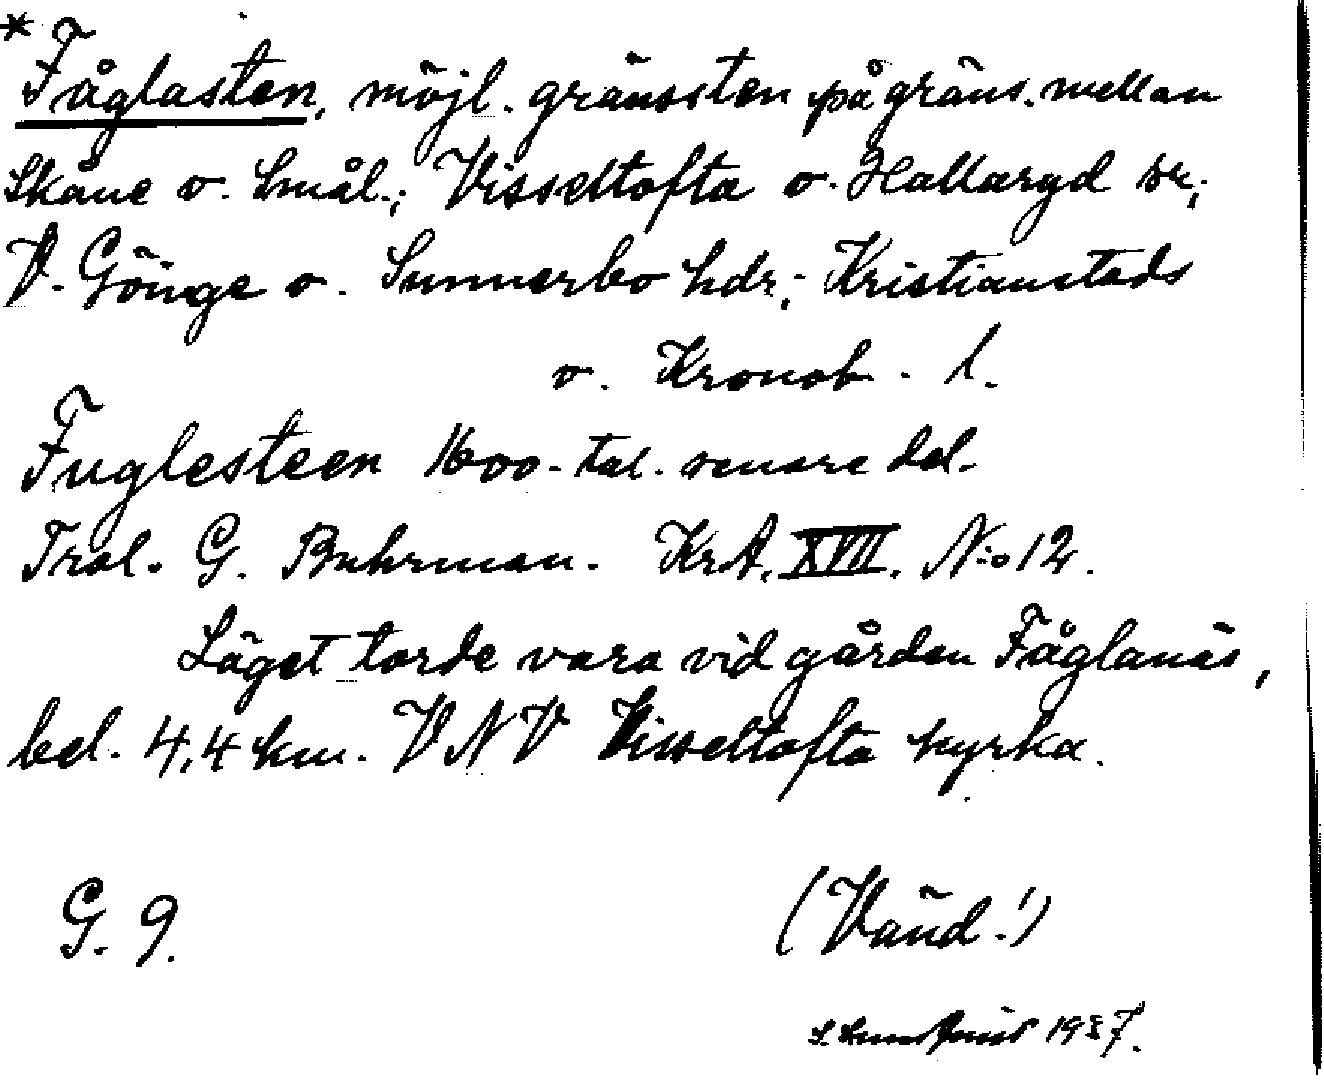 * Fåglasten, möjl. gränssten på gräns. mellan
Skåne o. Smål.; Visseltofta o. Hallaryd snr;
V. Göinge o. Sunnerbo hdr; Kristianstads
o. Kronob. l.
Fuglesteen 1600-tal. senare del.
Trol. G. Buhrman. KrA. XVII. N:o 12.
Läget torde vara vid gården Fåglanäs,
bel. 4,4 km. VNV Visseltofta kyrka.
G. 9.
(Vänd!)
1937.